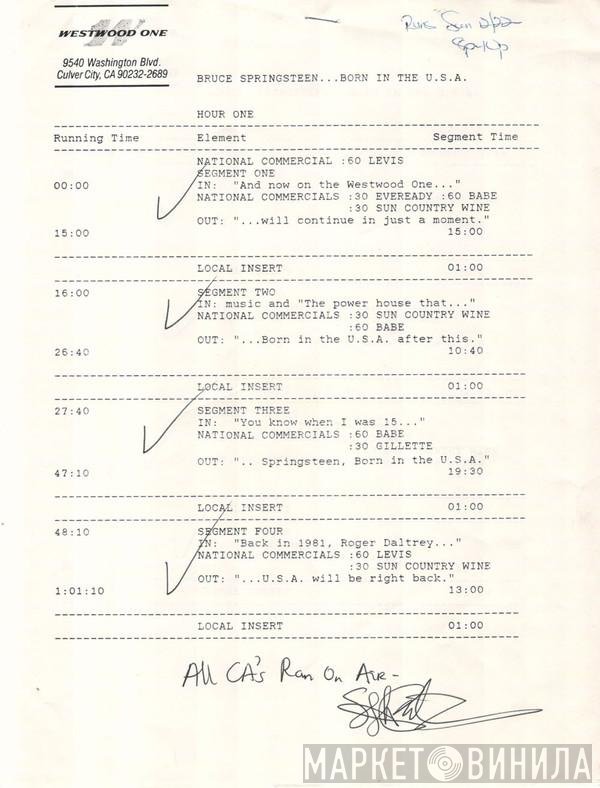 WESTWOOD ONE
9540 Washington Blvd.
Culver City, CA 90232-2689
Runs Sun 2/22
8p-10p
BRUCE SPRINGSTEEN...BORN IN THE U.S.A.
HOUR ONE
Running Time Element Segment Time
NATIONAL COMMERCIAL :60 LEVIS
SEGMENT ONE
00:00 IN: "And now on the Westwood One..."
NATIONAL COMMERCIALS :30 EVEREADY :60 BABE
:30 SUN COUNTRY WINE
OUT: "...will continue in just a moment."
15:00 15:00
LOCAL INSERT 01:00
16:00 SEGMENT TWO
IN: music and "The power house that..."
NATIONAL COMMERCIALS :30 SUN COUNTRY WINE
:60 BABE
OUT: "...Born in the U.S.A. after this."
26:40 10:40
LOCAL INSERT 01:00
27:40 SEGMENT THREE
IN: "You know when I was 15..."
NATIONAL COMMERCIALS :60 BABE
:30 GILLETTE
OUT: ".. Springsteen, Born in the U.S.A."
47:10 19:30
LOCAL INSERT 01:00
48:10 SEGMENT FOUR
IN: "Back in 1981, Roger Daltrey..."
NATIONAL COMMERCIALS :60 LEVIS
:30 SUN COUNTRY WINE
OUT: "...U.S.A. will be right back."
1:01:10 13:00
LOCAL INSERT 01:00
All CA's Ran On Air-
МАРКЕТ ВИНИЛА